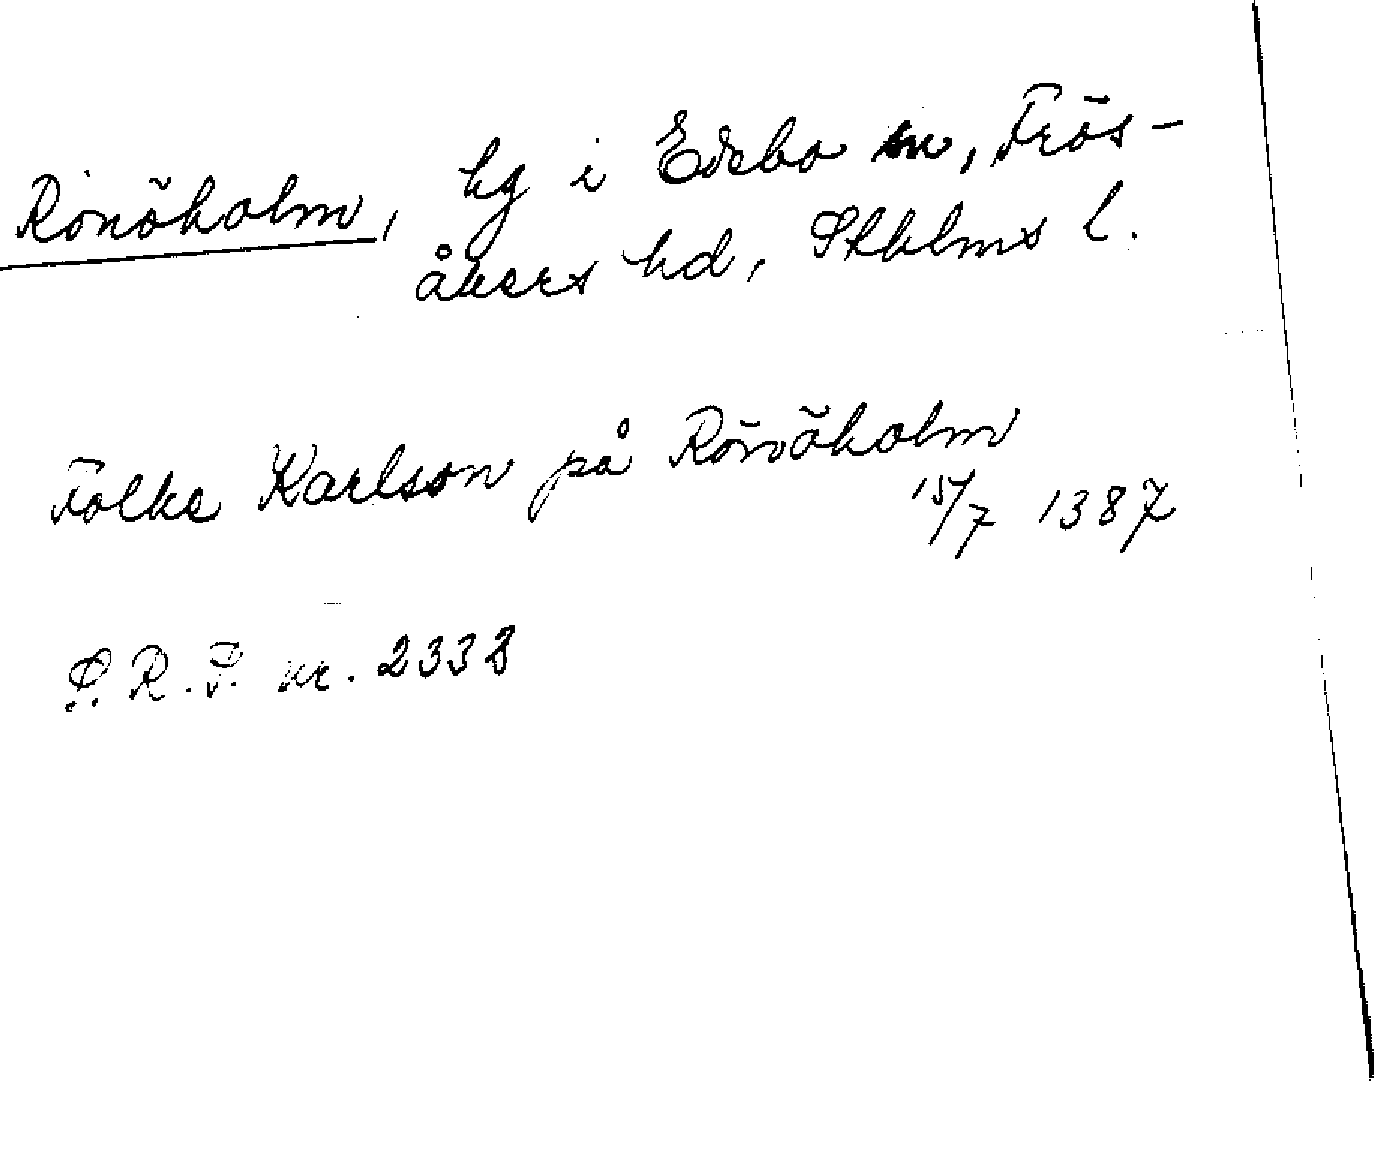 Rönöholm, hg i Edebo sn, Frös-
åkers hd, Stklms l.
Folke Karlson på Rönöholm
15/7 1387
S.R.P. nr. 2338